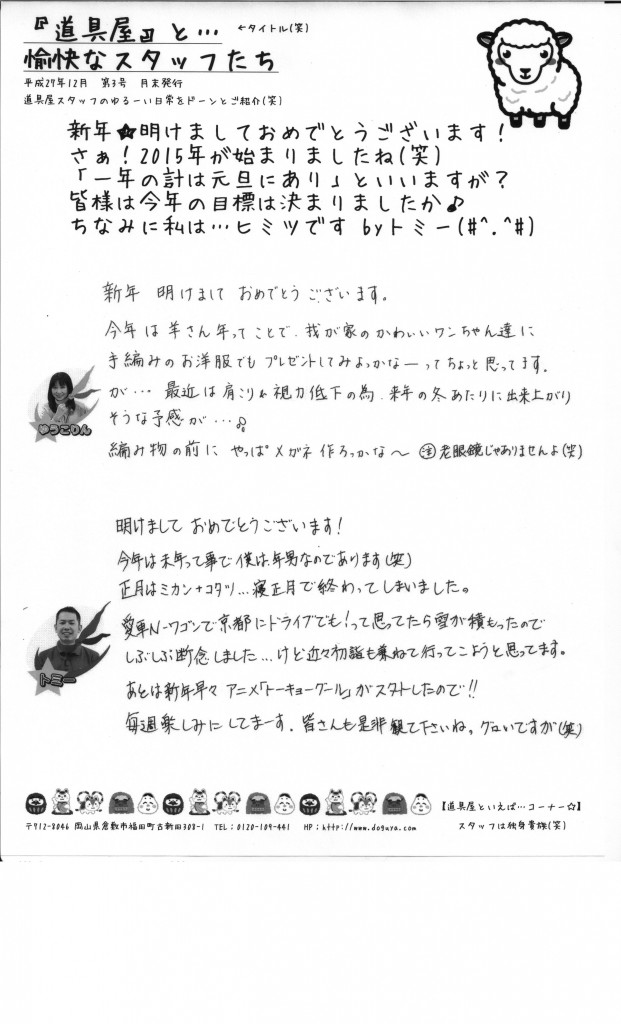 『道具屋』と… ←タイトル(笑)
愉快なスタッフたち
平成27年12月 第3号 月末発行
道具屋スタッフのゆるーい日常をドーンとご紹介(笑)
新年☆明けましておめでとうございます！
さぁ！2015年が始まりましたね(笑)
「一年の計は元旦にあり」といいますが？
皆様は今年の目標は決まりましたか♪
ちなみに私は…ヒミツです byトミー(#^.^#)
新年 明けまして おめでとう ございます。
今年は羊さん年ってことで、我が家のかわいいワンちゃん達に
手編みのお洋服でも プレゼントしてみよっかなーってちょっと思ってます。
が… 最近は肩こり&視力低下の為、来年の冬あたりに出来上がり
そうな予感が…♪
編み物の前に やっぱメガネ作ろっかな〜 ㊟老眼鏡じゃありませんよ(笑)
ゆうこりん
明けまして おめでとうございます！
今年は未年って事で僕は年男なのであります(笑)
正月はミカン+コタツ…寝正月で終わってしまいました。
愛車N-ワゴンで京都にドライブでも！って思ってたら雪が積もったので
しぶしぶ断念しました…けど近々初詣も兼ねて行ってこようと思ってます。
あとは新年早々 アニメ「トーキョーグール」がスタートしたので!!
毎週楽しみにしてまーす。皆さんも是非観て下さいね。グロいですが(笑)
トミー
【道具屋といえば…コーナー☆】
〒912-8046 岡山県倉敷市福田町古新田308-1 TEL：0120-109-441 HP：http://www.doguya.com/
スタッフは独身貴族(笑)